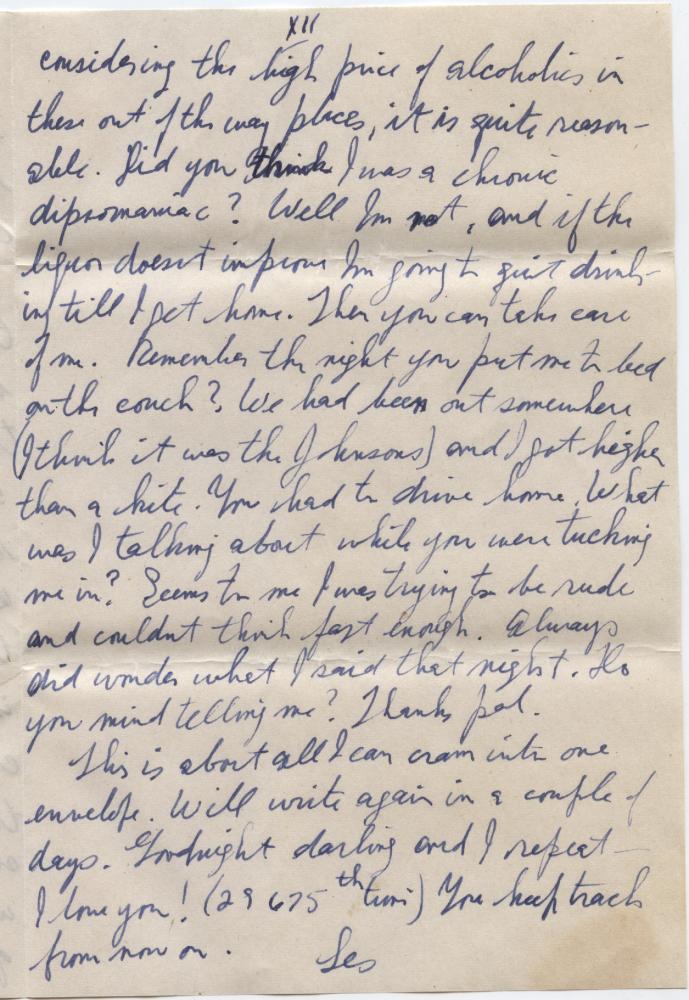 XII
considering the high price of alcoholics in
these out of the way places, it is quite reason-
able. Did you think I was a chronic
dipsomaniac? Well Im not, and if the
liquor doesnt improve Im going to quit drink-
ing till I get home. Then you can take care
of me. Remember the night you put me to bed
on the couch? We had been out somewhere
(I think it was the Johnsons) and I got higher
than a kite. You had to drive home. What
was I talking about while you were tucking
me in? Seems to me I was trying to be rude
and couldnt think fast enough. Always
did wonder what I said that night. Do
you mind telling me? Thanks pal.
This is about all I can cram into one
envelope. Will write again in a couple of
days. Goodnight darling and I repeat—
I love you! (29 675th time) You keep track
from now on. Les